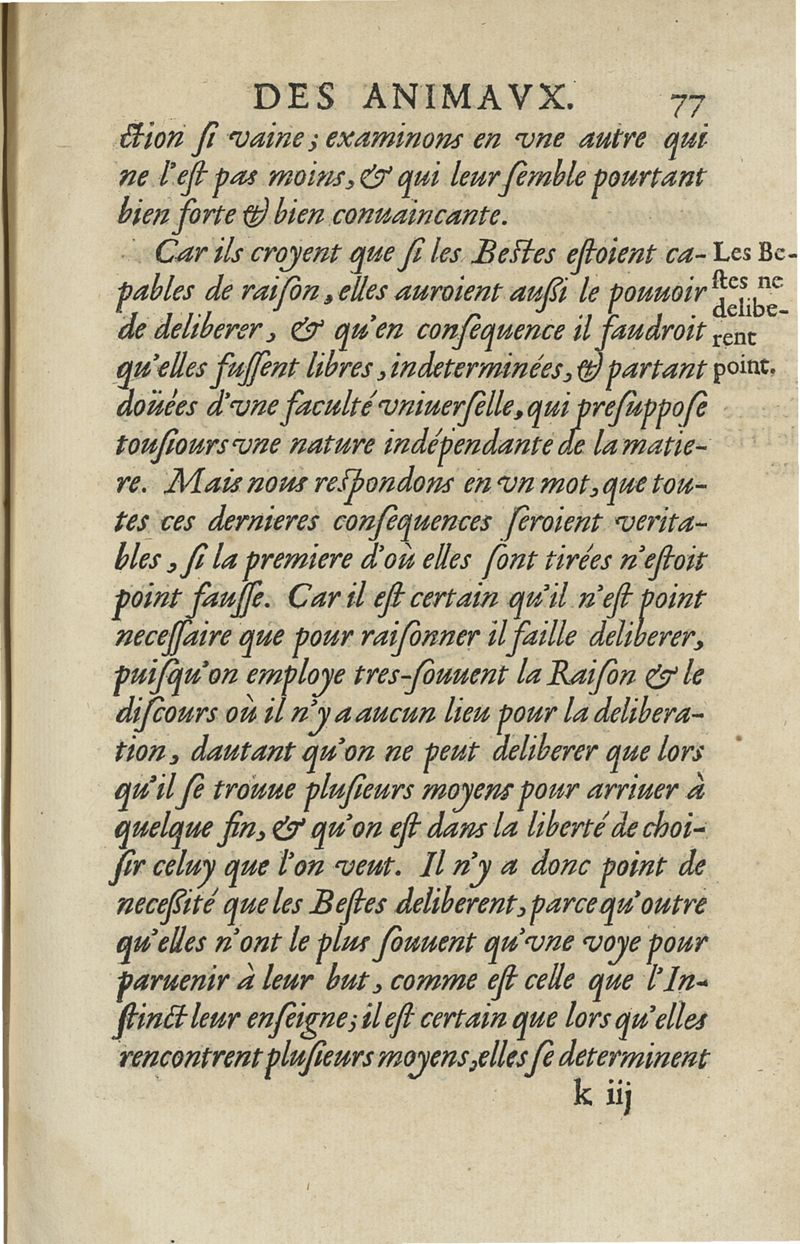 DES ANIMAVX. 77
ction ſi vaine; examinons en vne autre qui
ne l'eſt pas moins, & qui leur ſemble pourtant
bien forte & bien conuaincante.
Car ils croyent que ſi les Beſtes eſtoient ca-
pables de raiſon, elles auroient auſſi le pouuoir
de deliberer, & qu'en conſequence il faudroit
qu'elles fuſſent libres, indeterminées, & partant
doüées d'vne faculté vniuerſelle, qui preſuppoſe
touſiours vne nature indépendante de la matie-
re. Mais nous reſpondons en vn mot, que tou-
tes ces dernieres conſequences ſeroient verita-
bles, ſi la premiere d'où elles ſont tirées n'eſtoit
point fauſſe. Car il eſt certain qu'il n'eſt point
neceſſaire que pour raiſonner il faille deliberer,
puiſqu'on employe tres-ſouuent la Raiſon & le
diſcours où il n'y a aucun lieu pour la delibera-
tion, dautant qu'on ne peut deliberer que lors
qu'il ſe trouue pluſieurs moyens pour arriuer à
quelque fin, & qu'on eſt dans la liberté de choi-
ſir celuy que l'on veut. Il n'y a donc point de
neceſſité que les Beſtes deliberent, parce qu'outre
qu'elles n'ont le plus ſouuent qu'vne voye pour
paruenir à leur but, comme eſt celle que l'In-
ſtinct leur enſeigne; il eſt certain que lors qu'elles
rencontrent pluſieurs moyens, elles ſe determinent
k iij
Les Be-
ſtes ne
delibe-
rent
point.